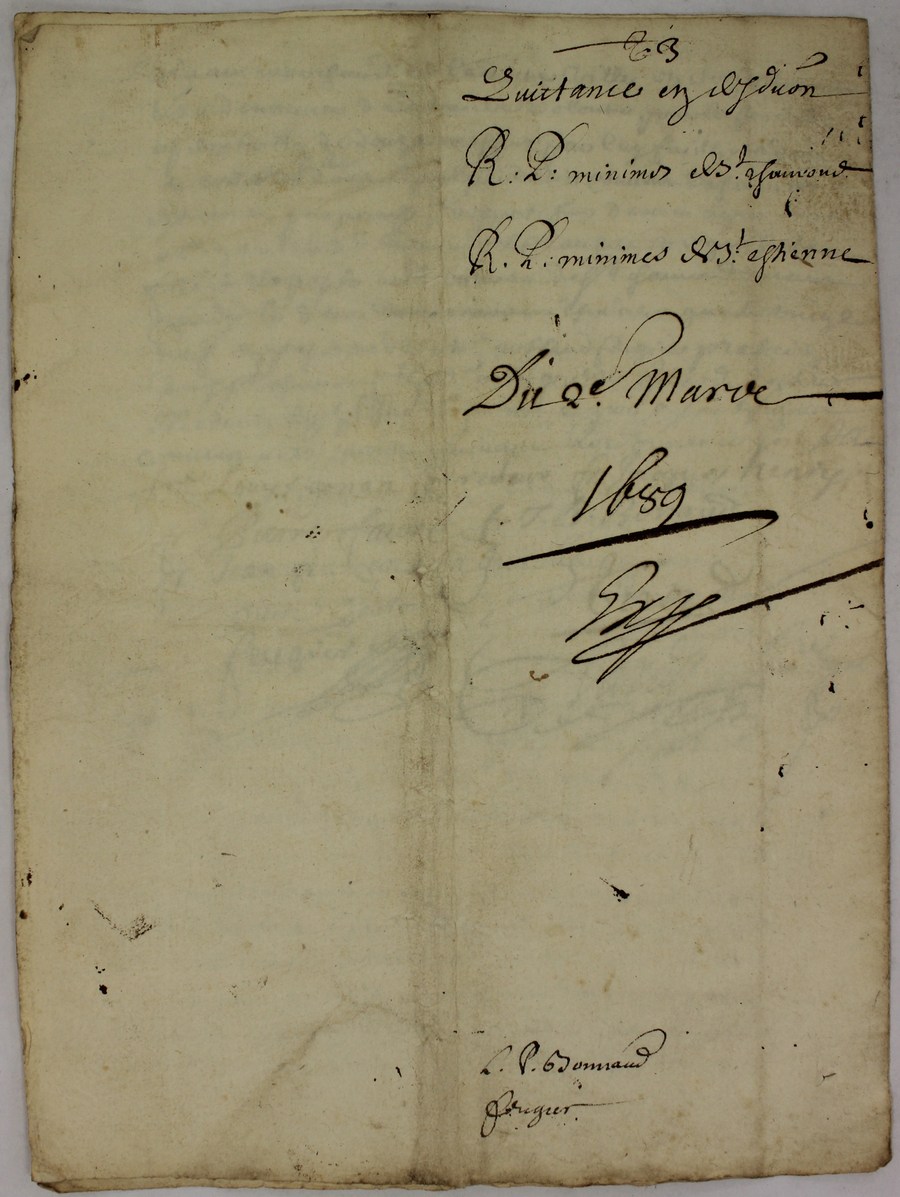 63
Quittance en
R. P. minimes de St. chamond
R. P. minimes de St. estienne
Du 2e. Mars
1689
L. P. Bonnaud
feugier